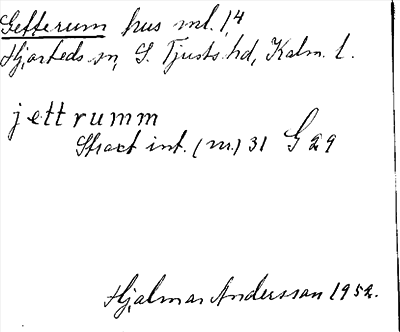 Getterum hus ml. 1,4
Hjorteds sn, S. Tjusts hd, Kalm. l.
jettrumm
Straxt int. (m.) 31 G 29
Hjalmar Andersson 1952.